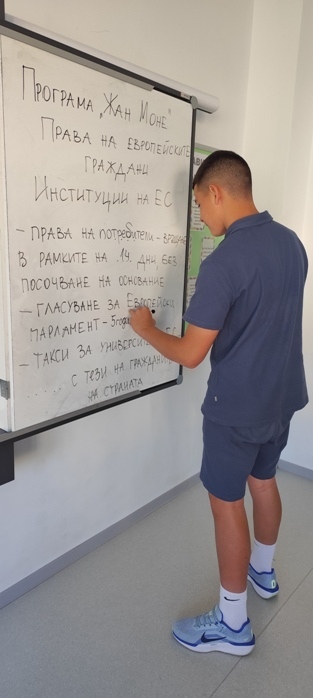 Програма „Жан Моне"
Права на европейските
граждани
Институции на ЕС
- права на потребители -
в рамките на 14 дни без
посочване на основание
- гласуване за Европейски
парламент - 5
- такси за
с тези на граждани
за страната